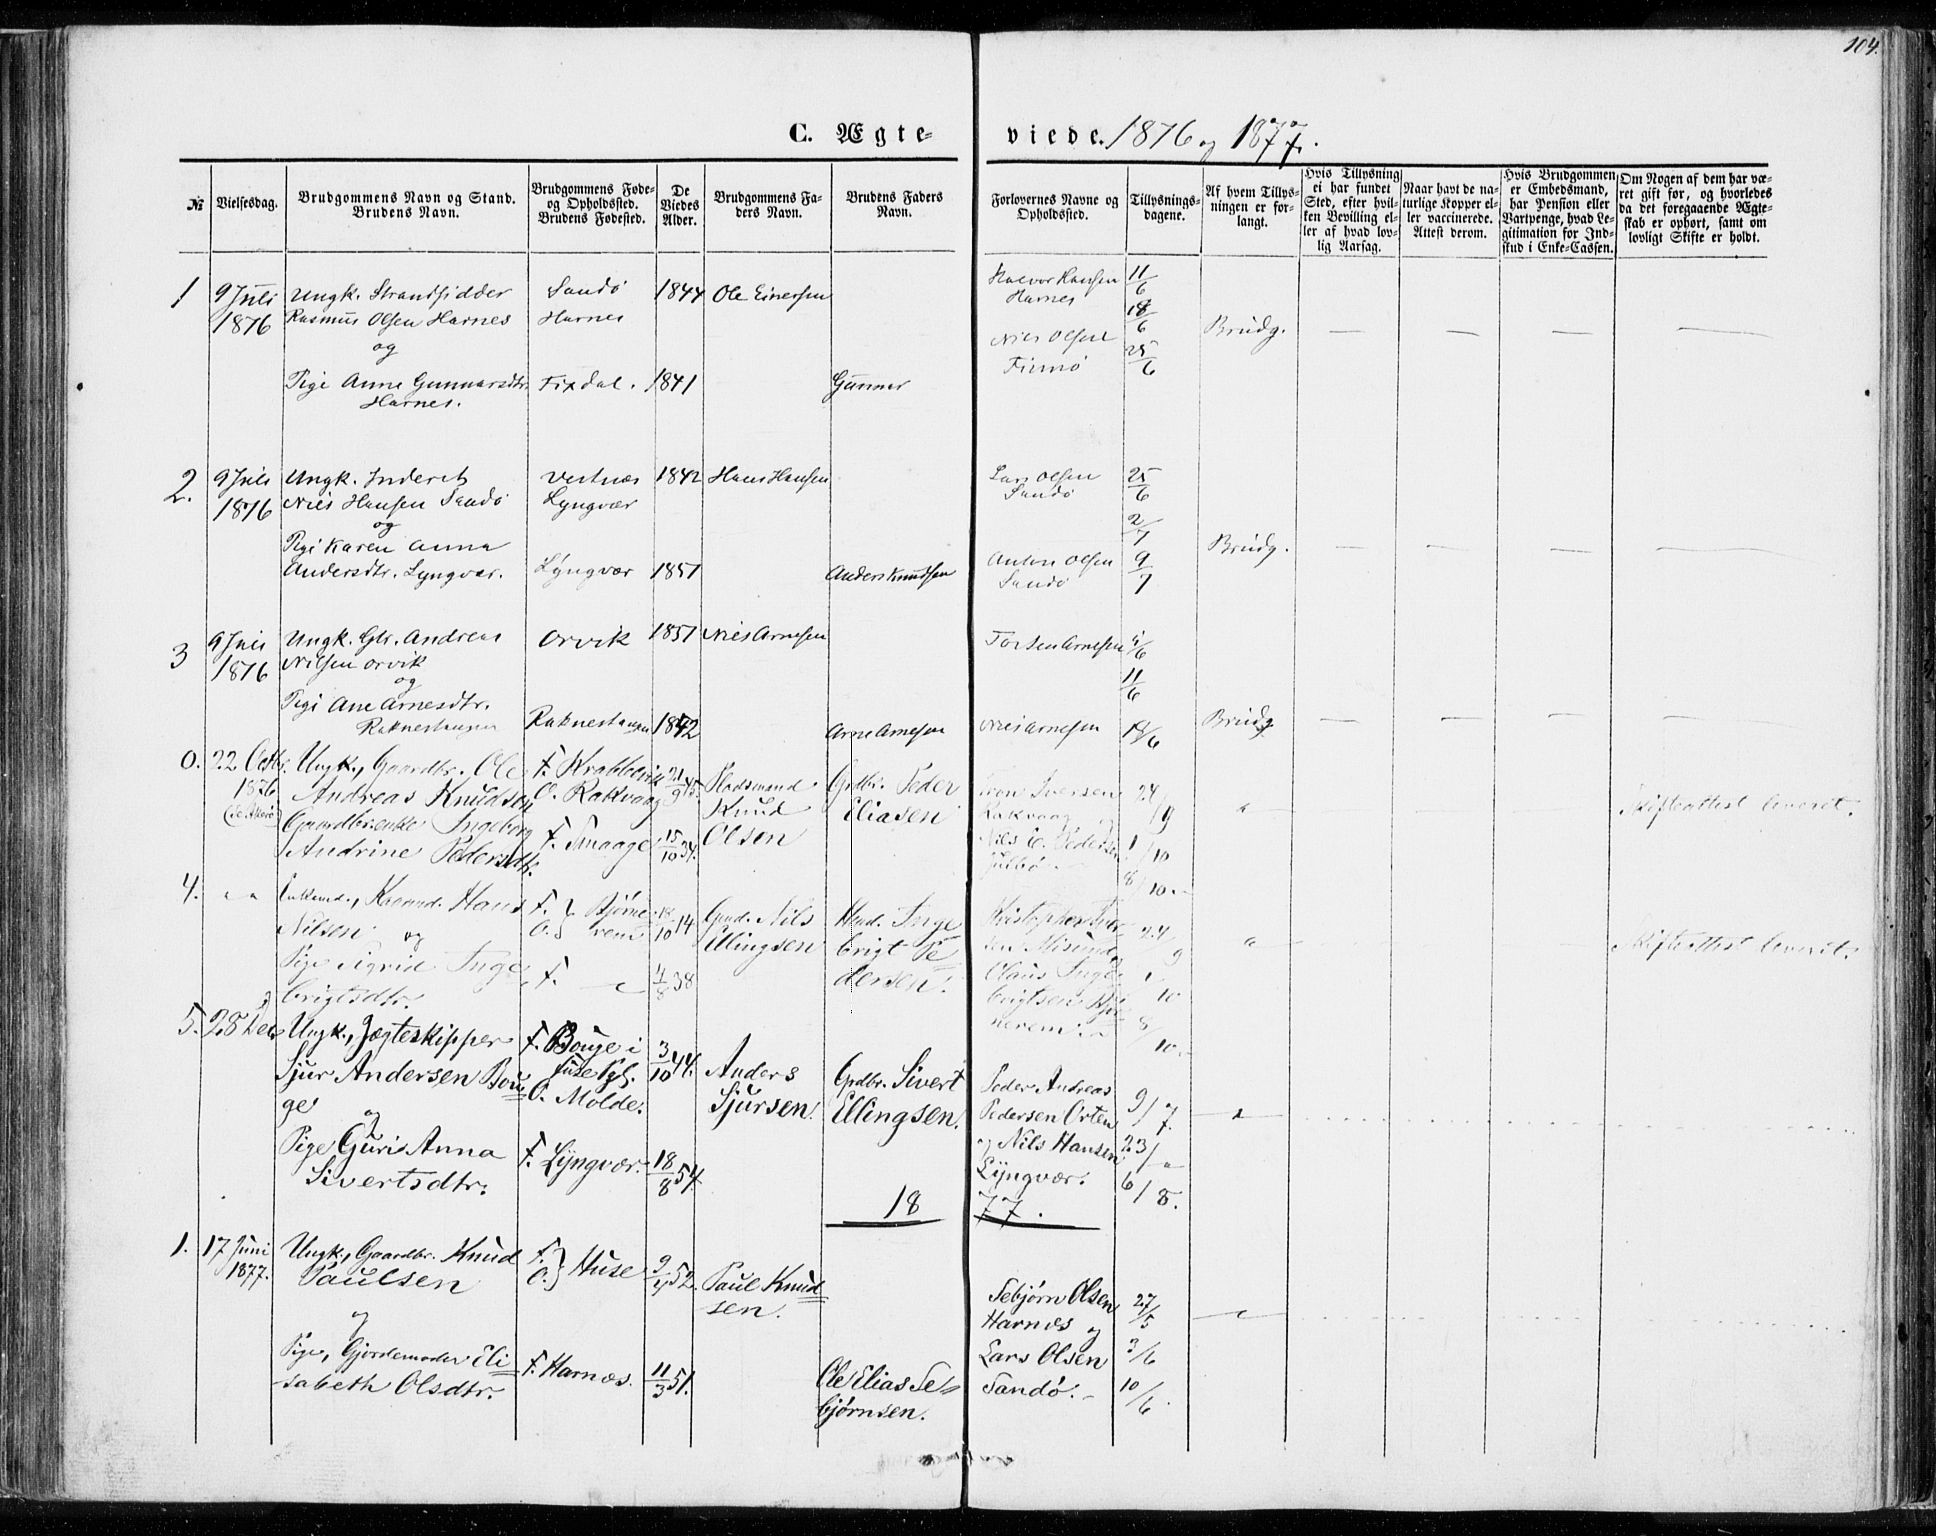 104.
C. Ægte-
viede. 1876 og 1877.
№
Vielsesdag.
Brudgommens Navn og Stand.
Brudens Navn.
Brudgommens Føde-
og Opholdssted.
Brudens Fødested.
De
Viedes
Alder.
Brudgommens Fa-
ders Navn.
Brudens Faders
Navn.
Forlovernes Navne og
Opholdssted.
Tillysnings-
dagene.
Af hvem Tillys-
ningen er for-
langt.
Hvis Tillysning
ei har fundet
Sted, efter hvil-
ken Bevilling el-
ler af hvad lov-
lig Aarsag.
Naar havt de na-
turlige Kopper el-
ler vaccinerede.
Attest derom.
Hvis Brudgommen
er Embedsmand,
har Pension eller
Vartpenge, hvad Le-
gitimation for Ind-
skud i Enke-Cassen.
Om Nogen af dem har væ-
ret gift før, og hvorledes
da det foregaaende Ægte-
skab er ophørt, samt om
lovligt Skifte er holdt.
1
9 Juli
1876
Ungk. Strandsidder
Rasmus Olsen Harnes
og
Pige Anne Gunnarsdtr.
Harnes.
Sandø
Harnes
Fixdal.
1844
1841
Ole Einersen
Gunner
Halvor Hansen
Harnes
Niels Olsen
Finnø
11/6
18/6
25/6
Brudg.
2.
9 Juli
1876
Ungk. Inderst
Niels Hansen Sandø
og
Pige Karen Anna
Andersdtr. Lyngvær.
Vestnæs
Lyngvær
Lyngvær
1842
1851
Hans Hansen
Anders Knudsen
Lars Olsen
Sandø
Anton Olsen
Sandø
25/6
2/7
9/7
Brudg.
3
9 Juli
1876
Ungk. Gbr. Andreas
Nilsen Orvik
og
Pige Ane Arnesdtr.
Raknestangen
Orvik
Raknestangen
1851
1842
Niels Arnesen
Arne Arnesen
Torsten Arnesen
Niels Arnesen
4/6
11/6
18/6
Brudg.
0.
22 Octbr.
1876
(i Akerø)
Ungk., Gaardbr. Ole
Andreas Knudsen
Gaardbr.enke Ingeborg
Andrine Pedersdtr.
F. Krabbevik
O. Rakvaag
F. Smaage
21/9 45.
15/10 34.
Pladsmand
Knud
Olsen
Grdbr. Peder
Eliasen
Iversen
Rakvaag og
Nils E. Pedersen
Julbø
24/9
1/10
8/10.
Skifteattest leveret.
4.
Enkemd., Kaarmd. Hans
Nilsen og
Pige Sigrid Inge
brigtsdtr.
F. } Bjørne
O. } rem
F.
18/10 14
4/8 38
Gmd. Nils
Ellingsen
Hmd. Inge
brigt Pe
dersen.
Kristopher Iver
sen Misund
Claus Inge
brigtsen Bjør
nerem.
24/9
1/10
8/10.
Skifteattest leveret.
5.
28 Dec.
Ungk., Jægteskipper
Sjur Andersen Bou
ge
og
Pige Guri Anna
Sivertsdtr.
F. Bouge i
Fuse Pgl.
O. Molde.
F. Lyngvær.
3/10 44.
18/8 54.
Anders
Sjursen.
Grdbr. Sivert
Ellingsen.
Peder Andreas
Pedersen Orten
og Nils Hansen
Lyngvær.
9/7.
23/
6/8.
18
77.
1.
17 Juni
1877.
Ungk., Gaardbr. Knud
Paulsen
og
Pige, Gjordemoder Eli
sabeth Olsdtr.
F. } Huse
O. }
F. Harnæs.
52.
11/3 51.
Paul Knud
sen.
Ole Elias Se-
bjørnsen.
Sebjørn Olsen
Harnæs og
Lars Olsen
Sandø.
27/5
3/6
10/6.